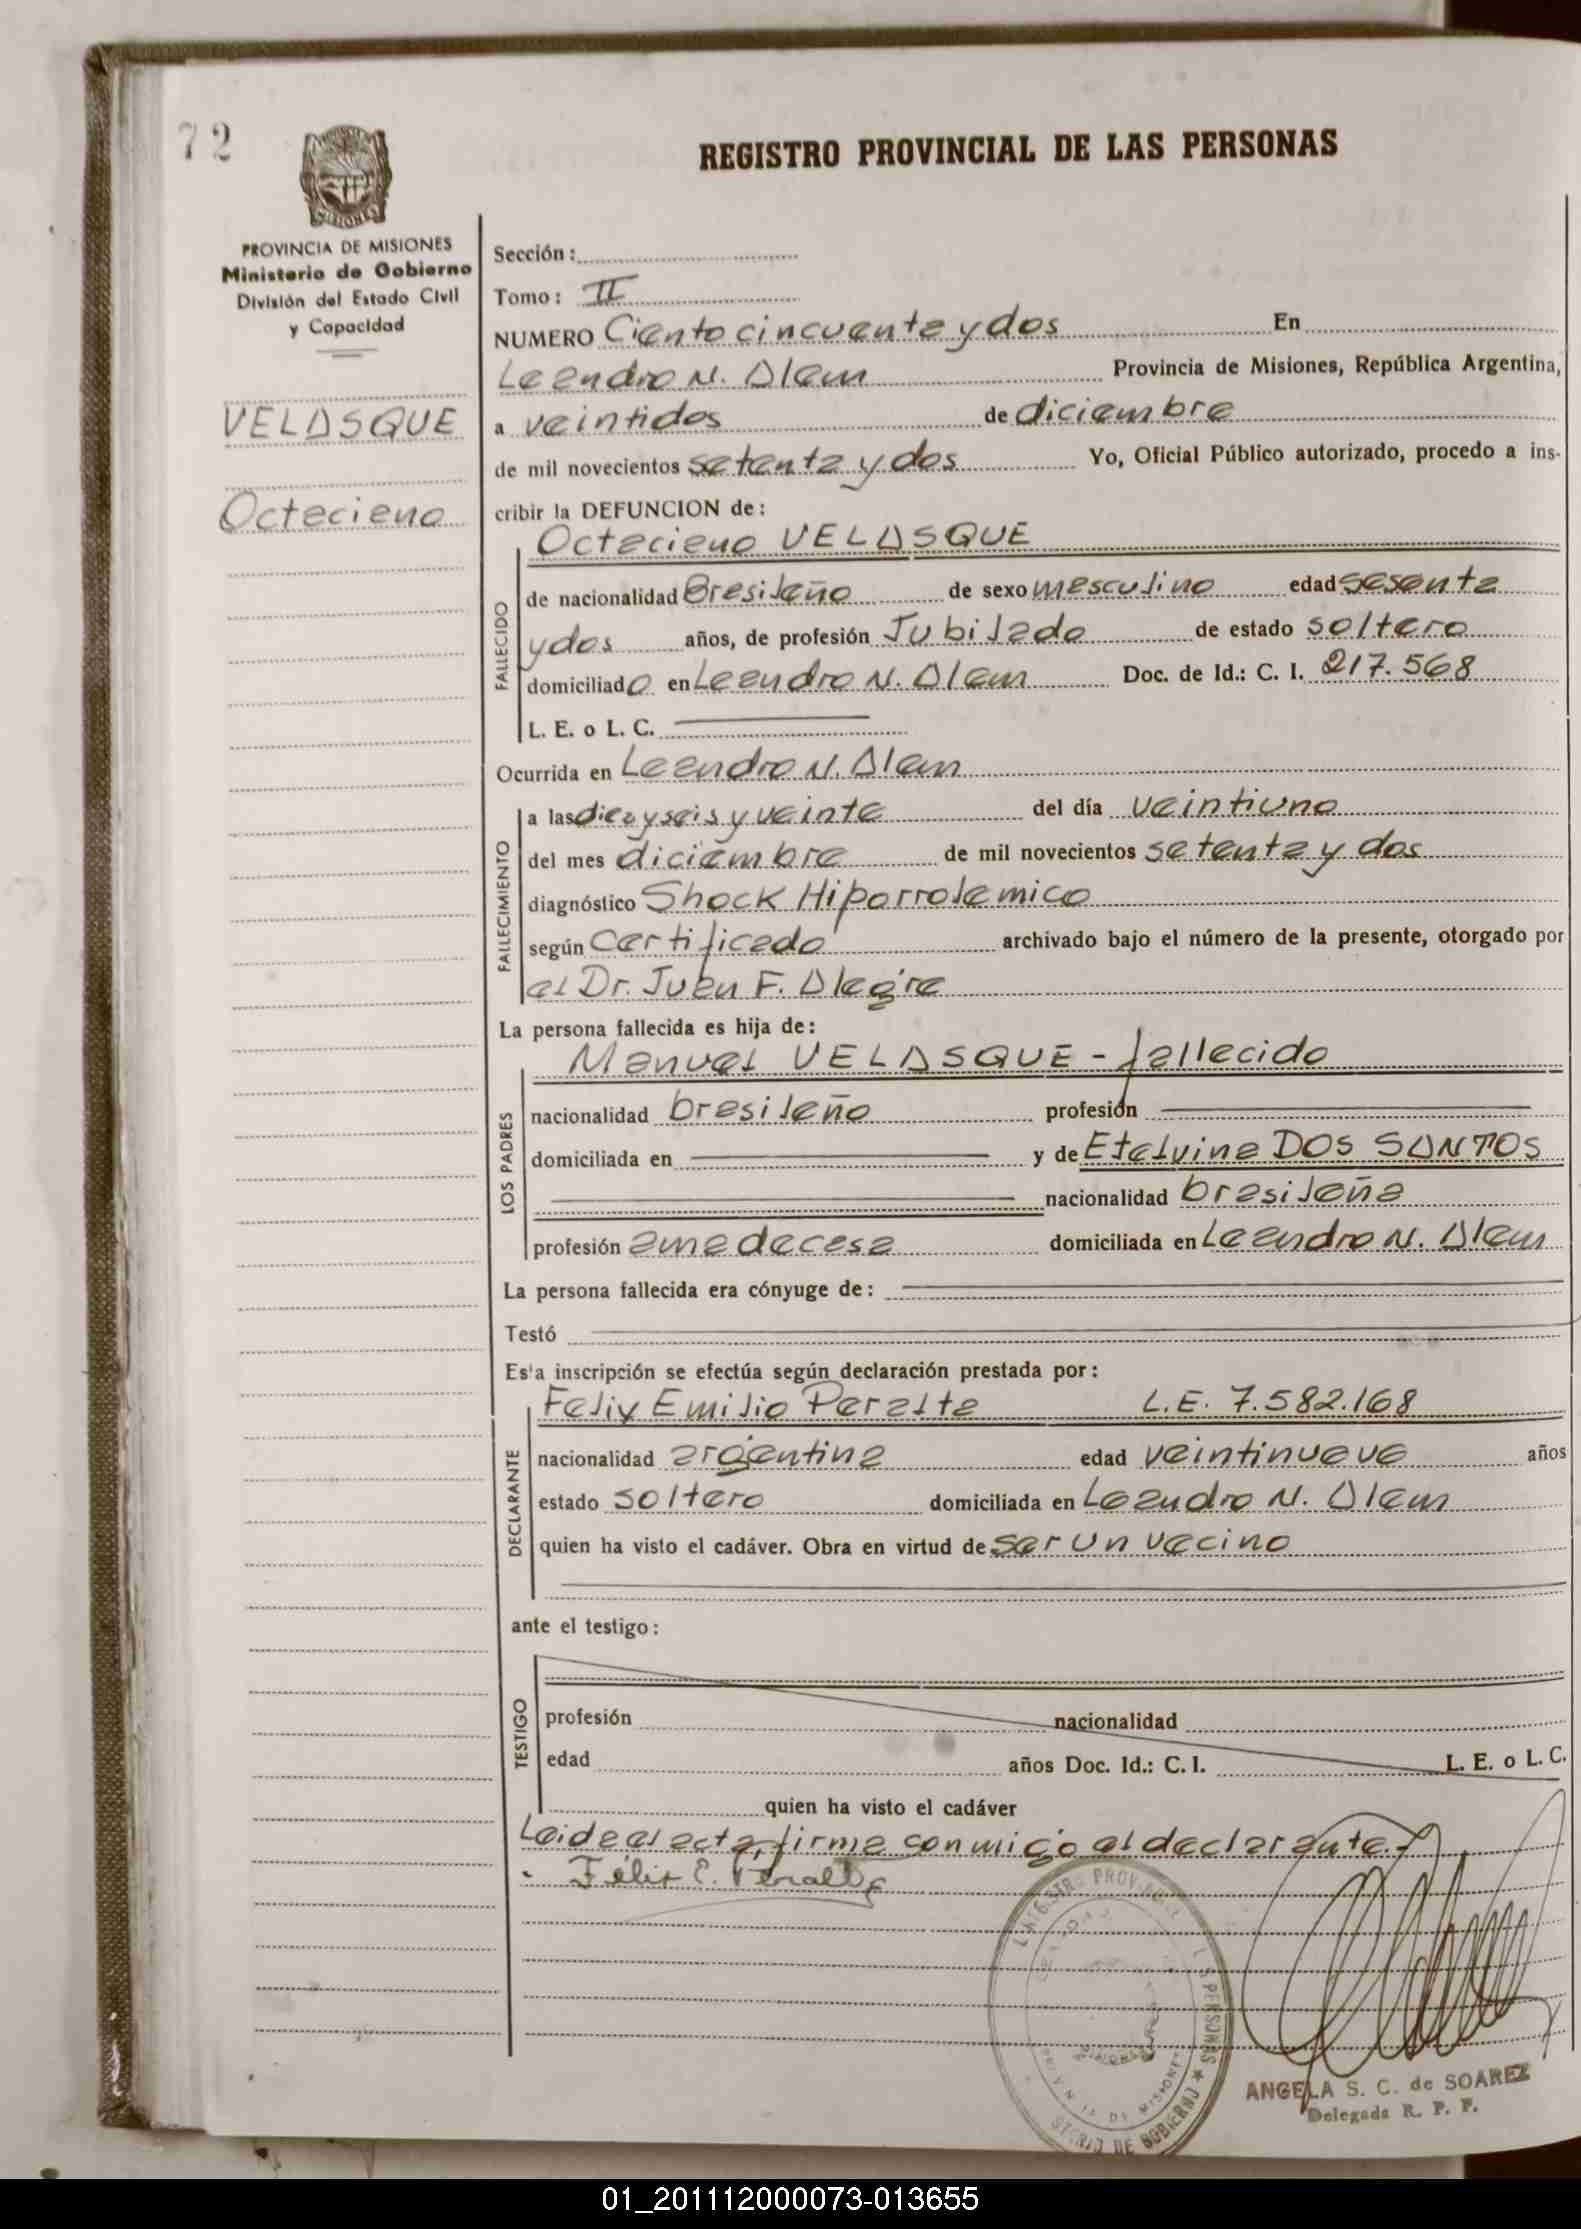 72
REGISTRO PROVINCIAL DE LAS PERSONAS
PROVINCIA DE MISIONES
Ministerio de Gobierno
División del Estado Civil
y Capacidad
VELASQUE
Octacieno
Sección:
Tomo: II
NUMERO Ciento cincuenta y dos En
Leandro N. Alem Provincia de Misiones, República Argentina,
a veintidos de diciembre
de mil novecientos setenta y dos Yo, Oficial Público autorizado, procedo a ins-
cribir la DEFUNCION de:
Octacieno VELASQUE
FALLECIDO
de nacionalidad Brasileño de sexo masculino edad sesenta
y dos años, de profesión Jubilado de estado soltero
domiciliado en Leandro N. Alem Doc. de Id.: C. I. 217.568
L. E. o L. C.
Ocurrida en Leandro N. Alem
FALLECIMIENTO
a las diez y seis y veinte del día veintiuno
del mes diciembre de mil novecientos setenta y dos
diagnóstico Shock Hiporrolemico
según Certificado archivado bajo el número de la presente, otorgado por
el Dr. Juan F. Alegre
La persona fallecida es hija de:
Manuel VELASQUE - fallecido
LOS PADRES
nacionalidad brasileño profesión
domiciliada en y de Etelvina DOS SANTOS
nacionalidad brasileña
profesión ama de casa domiciliada en Leandro N. Alem
La persona fallecida era cónyuge de:
Testó
Esta inscripción se efectúa según declaración prestada por:
Felix Emilio Peralta L.E. 7.582.168
DECLARANTE
nacionalidad argentina edad veintinueve años
estado soltero domiciliada en Leandro N. Alem
quien ha visto el cadáver. Obra en virtud de ser un vecino
ante el testigo:
TESTIGO
profesión nacionalidad
edad años Doc. Id.: C. I. L. E. o L. C.
quien ha visto el cadáver
Leida el acta, firma conmigo el declarante.-
Félix E. Peralta
ANGELA S. C. de SOAREZ
Delegada R. P. P.
01_201112000073-013655